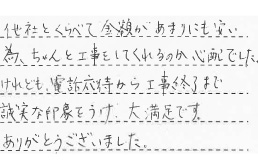 他社とくらべて金額があまりにも安い
為、ちゃんと工事をしてくれるのか心配でした。
けれども、電話応待から工事終了まで
誠実な印象をうけ、大満足です。
ありがとうございました。